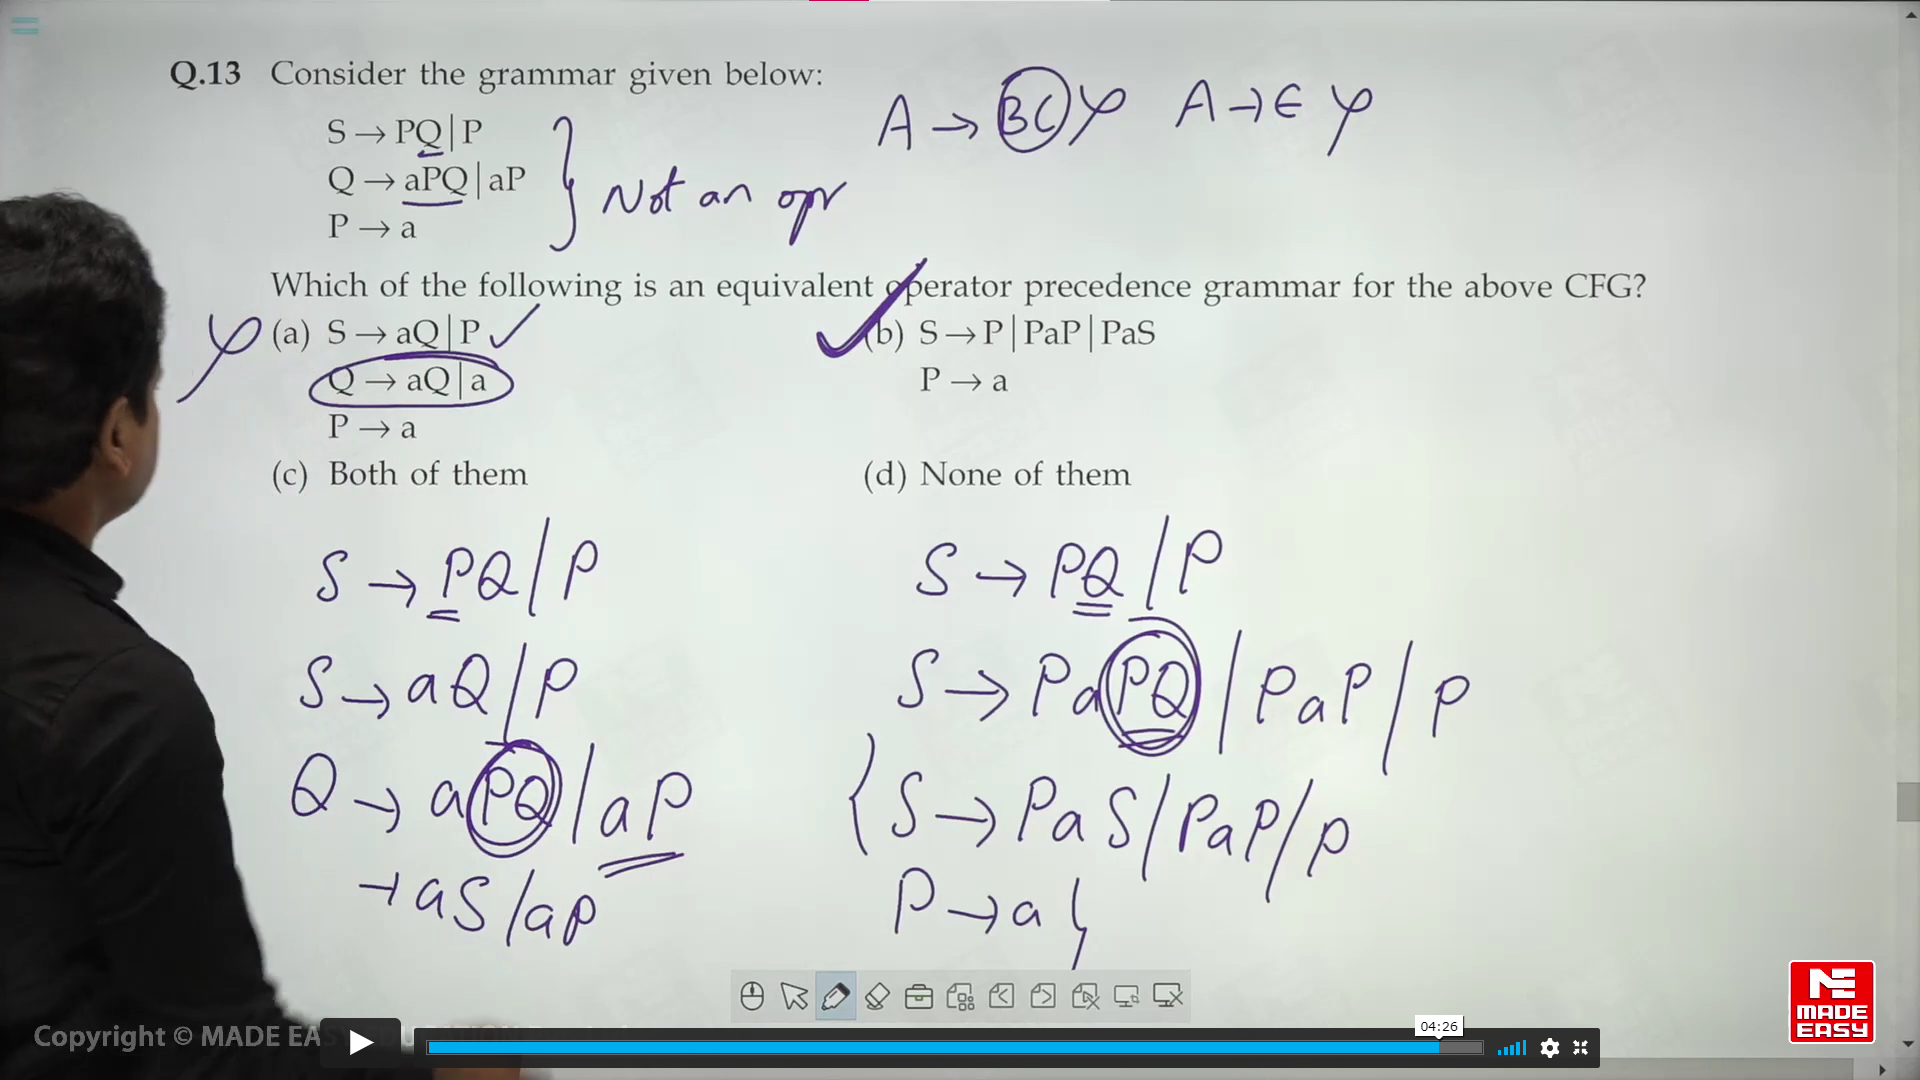 Q.13 Consider the grammar given below:
S → PQ|P
Q → aPQ|aP
P → a
Not an opr
A → BC
A → ∈
Which of the following is an equivalent operator precedence grammar for the above CFG?
(a) S → aQ|P
Q → aQ|a
P → a
(b) S → P|PaP|PaS
P → a
(c) Both of them
(d) None of them
S → PQ/P
S → aQ/P
Q → aPQ/aP
→ aS/aP
S → PQ/P
S → PaPQ/PaP/P
S → PaS/PaP/P
P → a
Copyright © MADE EA
04:26
ME
MADE
EASY